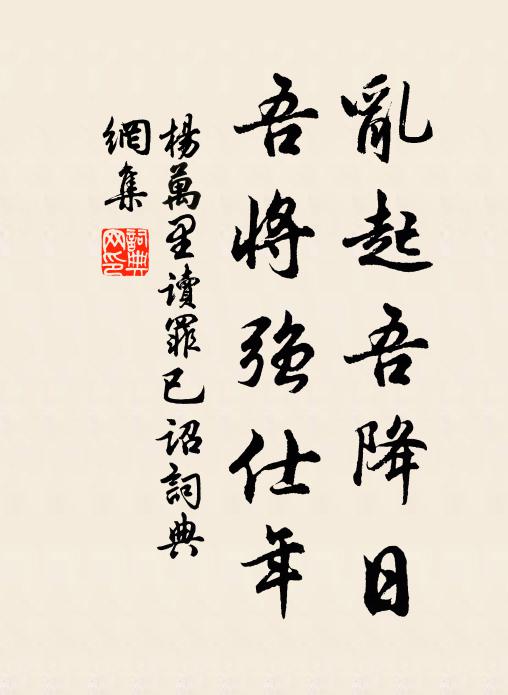 亂起吾降日
吾將強仕年
楊萬里讀罪已詔詞典
網集
詞典網印